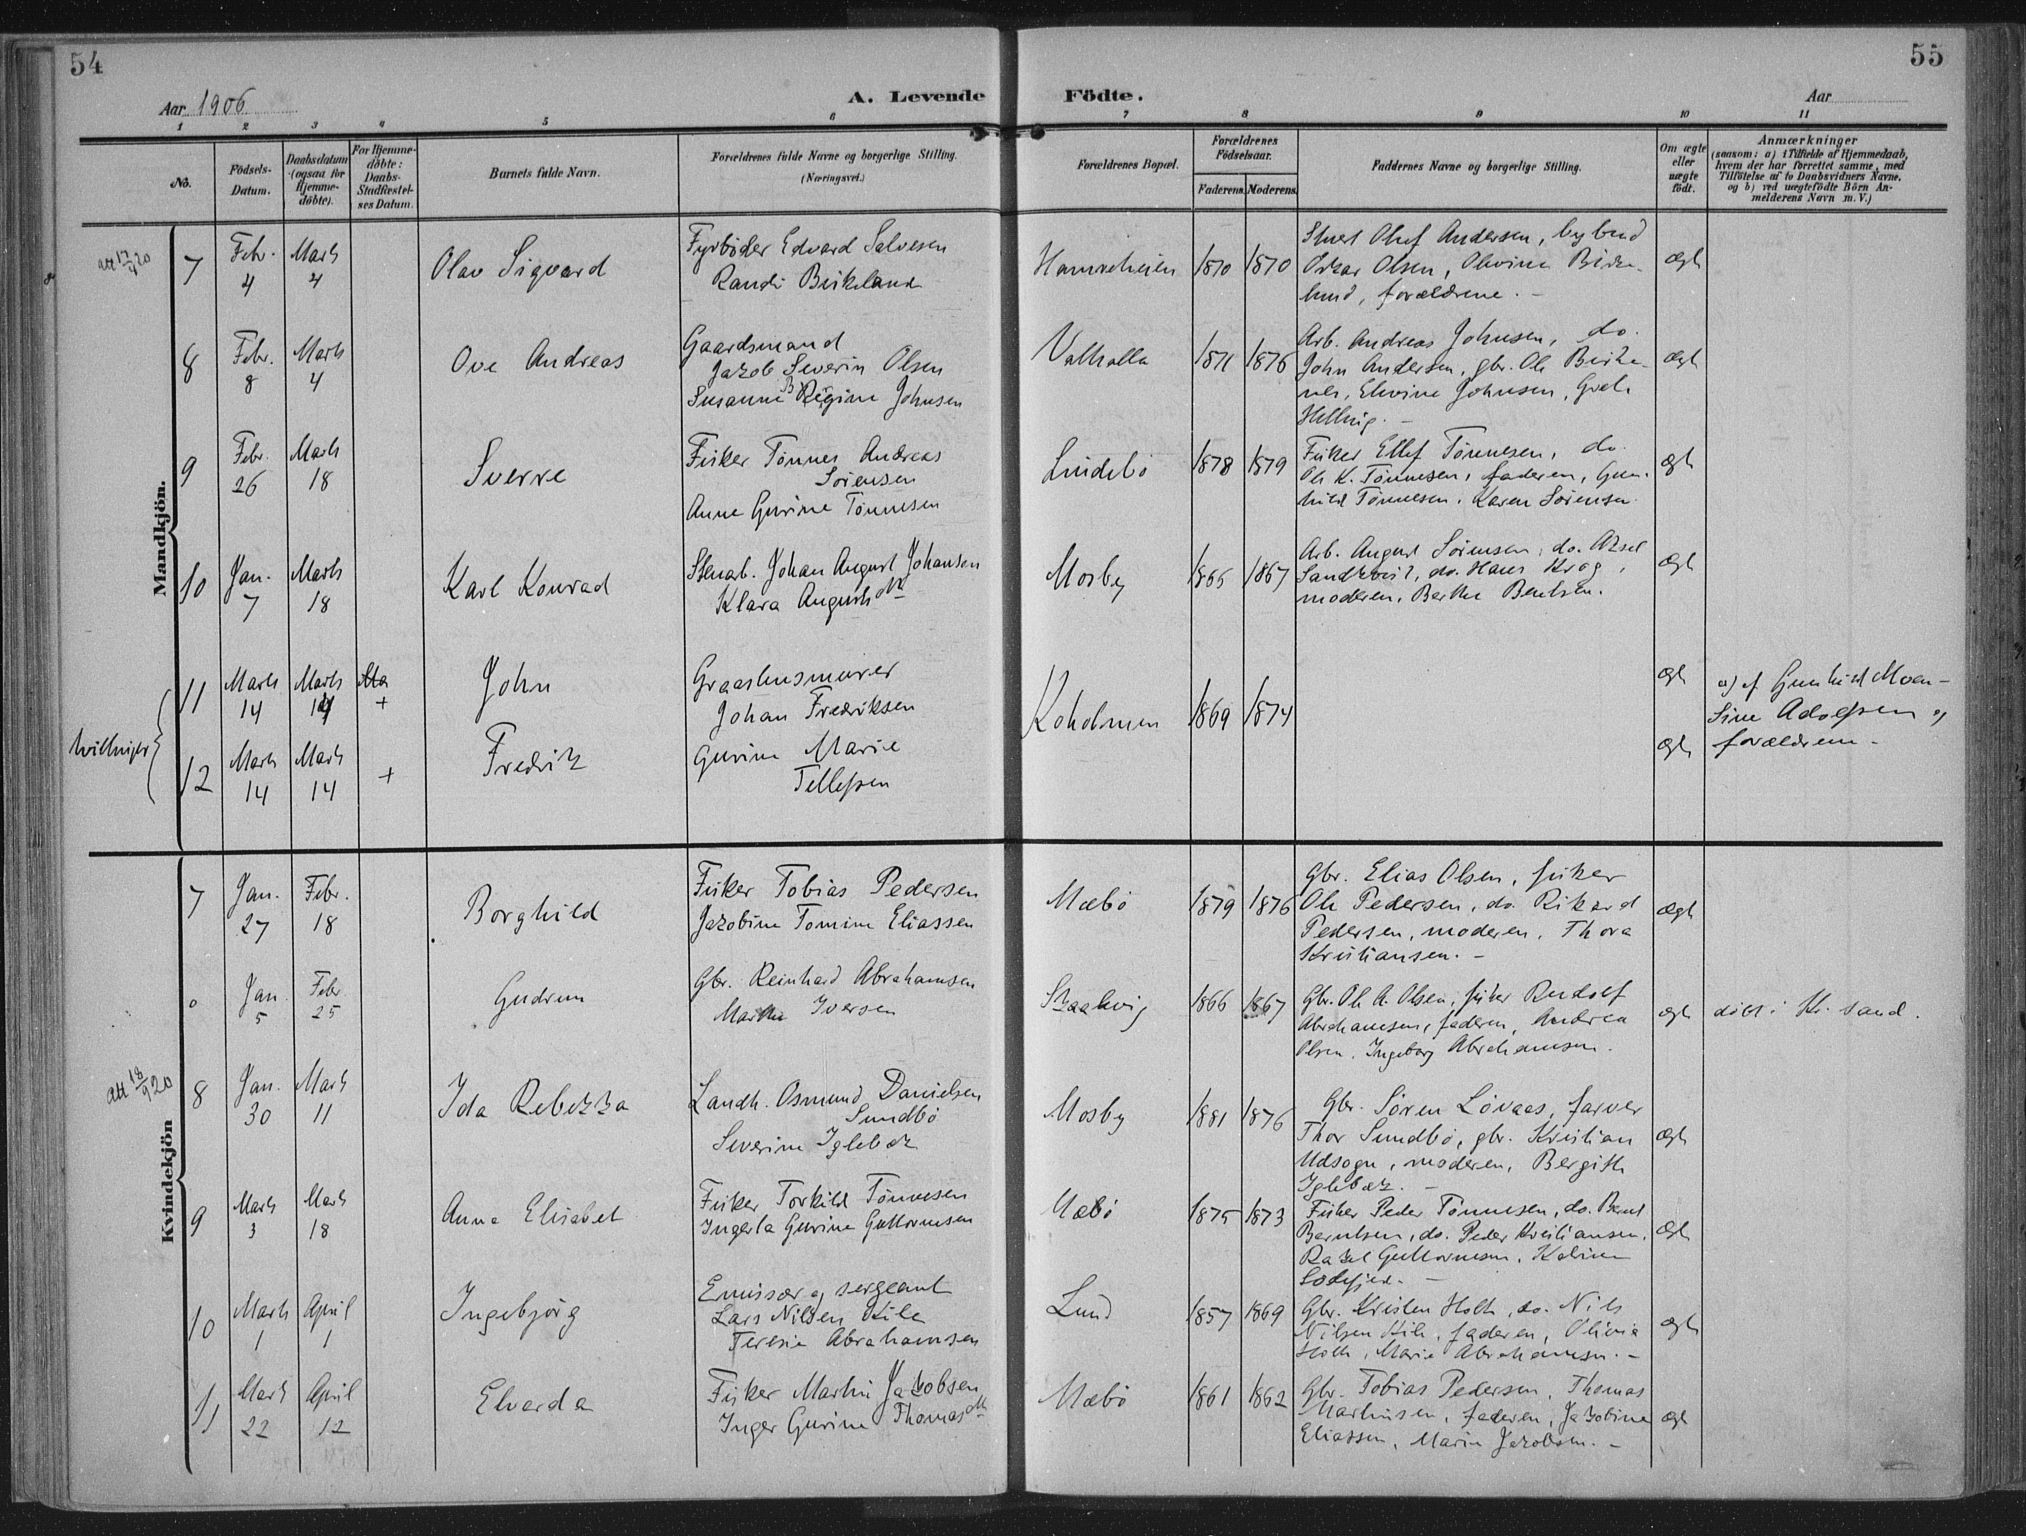 54
55
Aar 1906
A. Levende
Födte.
Aar
1 2 3 4 5 6 7 8 9 10 11
No.
Födsels-
Datum.
Daabsdatum
(ogsaa for
Hjemme-
döbte).
For Hjemme-
döbte:
Daabs-
Stadfæstel-
ses Datum.
Barnets fulde Navn.
Forældrenes fulde Navne og borgerlige Stilling.
(Næringsvei.)
Forældrenes Bopæl.
Forældrenes
Födselsaar.
Faderens. Moderens.
Faddernes Navne og borgerlige Stilling.
Om ægte
eller
uægte
födt.
Anmærkninger
(saasom: a) i Tilfælde af Hjemmedaab,
hvem der har forrettet samme, med
Tilföielse af to Daabsvidners Navne,
og b) ved uægtefödte Börn An-
melderens Navn m. V.)
Mandkjön.
att 17/4 20
7 Febr. 4 Marts 4
Olav Sigvard
Fyrböder Edvard Salvesen
Randi Birkeland
Hamreheien 1870 1870
Olaf Andersen, bybud
Oskar Olsen, Olevine Birke-
lund, forældrene. -
ægte
8 Febr. 8 Marts 4
Ove Andreas
Gaardsmand
Jakob Severin Olsen
Susanne B. Regine Johnsen
Valhalla 1871 1876
Arb. Andreas Johnsen, do.
John Andersen, gbr. Ole Birke-
nes, Elevine Johnsen, Grete
Helling. -
ægte
9 Febr. 26 Marts 18
Sverre
Fisker Tönnes Andreas
Sörensen
Anne Gurine Tönnesen
Lindebö 1878 1879
Fisker Ellef Tönnesen, do.
Ole K. Tönnesen, faderen, Gun-
hild Tönnesen, Karen Sörensen.
ægte
10 Jan. 7 Marts 18
Karl Konrad
Stenarb. Johan August Johansen
Klara Augusta
Mosby 1865 1867
Arb. August Sörensen, do. Aksel
Sandkvist, do. Hans Krog,
moderen, Berthe Bentsen.
ægte
tvillinger
11 Marts 14 Marts 14 Ma +
John
Graastensmurer
Johan Fredriksen
Koholmen 1869 1874
ægte
a) af Gunhild Moen -
Sine Adolfsen og
forældrene -
12 Marts 14 Marts 14 +
Fredrik
Gurine Marie
Tellefsen
ægte
Kvindekjön
7 Jan. 27 Febr. 18
Borghild
Fisker Tobias Pedersen
Jakobine Tomine Eliassen
Mæbö 1879 1876
Gbr. Elias Olsen, fisker
Ole Pedersen, do. Rikard
Pedersen, moderen, Thora
Kristiansen. -
ægte
0 Jan. 5 Febr. 25
Gudrun
Gbr. Reinhard Abrahamsen
Marthe Iversen
Skaalevig 1866 1867
Gbr. Ole A. Olsen, fisker Rudolf
Abrahamsen, faderen, Andrea
Olsen, Ingeborg Abrahamsen.
ægte
döbt i Kr.sand.
att 18/9 20
8 Jan. 30 Marts 11
Ida Rebekka
Landh. Osmund Danielsen
Sundbö
Severine Iglebæk
Mosby 1881 1876
Gbr. Sören Lövaas, farver
Thor Sundbö, gbr. Kristian
Udsogn, moderen, Bergith
Iglebæk. -
ægte
9 Marts 3 Marts 18
Anna Elisabet
Fisker Torkild Tönnesen
Ingerta Gurine Guttormsen
Mæbö 1875 1873
Fisker Peder Tönnesen, do. Bernt
Berntsen, do. Peder Kristiansen,
Rakel Guttormsen, Kabine
ægte
10 Marts 1 April 1
Ingebjörg
Emissær og sergeant
Lars Nilsen Kile
Teresie Abrahamsen
Lund 1857 1869
Gbr. Kristen Holte, do. Nils
Nilsen Kile, faderen, Olivia
Holte, Marie Abrahamsen. -
ægte
11 Marts 22 April 12
Elvarda
Fisker Martin Jakobsen
Inger Gurine Thomas
Mæbö 1861 1862
Gbr. Tobias Pedersen, Thomas
Martinsen, faderen, Jakobine
Eliassen, Marie Jakobsen. -
ægte